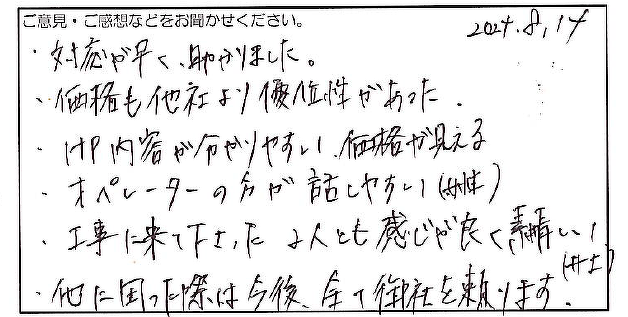 ご意見・ご感想などをお聞かせください。
2024.8.14
・対応が早く、助かりました。
・価格も他社より優位性があった.
・HP内容が分かりやすい、価格が見える
・オペレーターの方が話しやすい(女性)
・工事に来て下さった2人とも感じが良く素晴しい!
・他に困った際は今後、全て御社を頼ります.